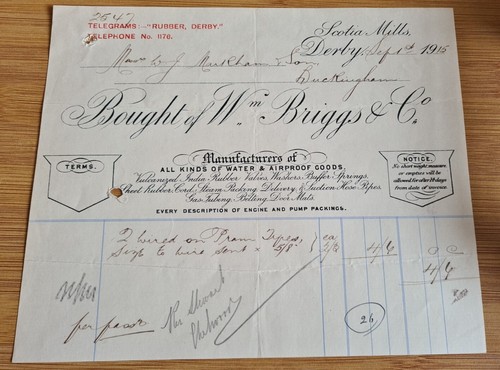 2547
TELEGRAMS:—"RUBBER, DERBY."
TELEPHONE No. 1176.
Scotia Mills,
Derby, Sept 1st 1915
Markham & Son
Buckingham
Bought of Wm. Briggs & Co.
TERMS.
Manufacturers of
ALL KINDS OF WATER & AIRPROOF GOODS,
Vulcanized India-Rubber Valves, Washers, Buffer Springs,
Sheet Rubber, Cord, Steam Packing, Delivery & Suction Hose Pipes,
Gas Tubing, Belting, Door Mats.
EVERY DESCRIPTION OF ENGINE AND PUMP PACKINGS.
NOTICE.
No short weight, measure
or empties will be
allowed for after 10 days
from date of invoice.
2 wired on Pram Tyres ea
Size to wire sent x 5/8" 2/3 4/6
4/6
per pass
Per Steward
26